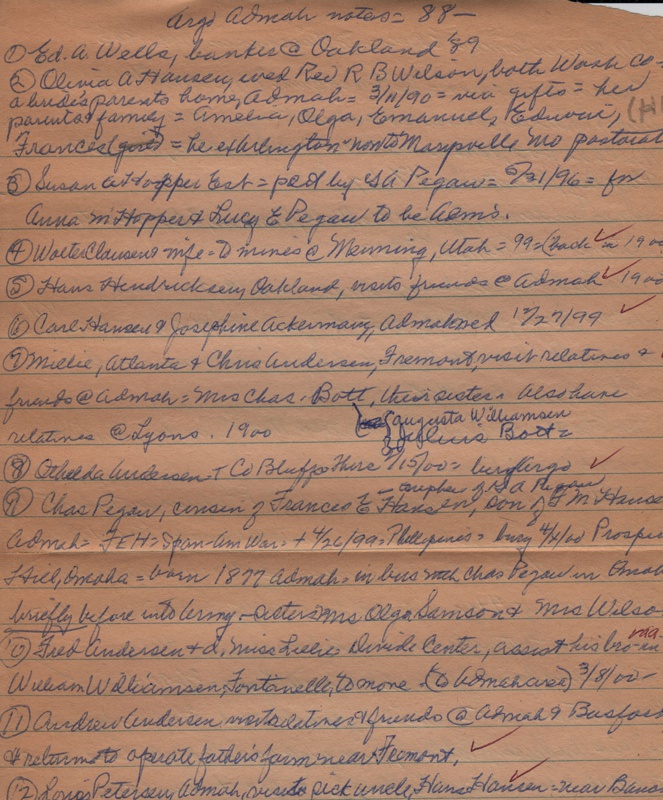 Argo Admah notes = 88 —
① Ed. A. Wells, banker @ Oakland '89
② Olivia A Hansen, wed Rev R B Wilson, both Wash Co =
a bride's parents home, Admah = 3/11/90 = via gifts = her
parents & family = Amelia, Olga, Emanuel, Edwin, (H
Frances = he ex Arlington now to Marysville Mo pastorate
③ Susan A Hopper Est = ped by SA Pegau = 5/21/96 = for
Anna M Hopper & Lucy E Pegau to be Adms.
④ Walter Clausen & wife = to mines @ Mercury, Utah = 99 = (back in 1900
⑤ Hans Hendricksen, Oakland, visits friends @ Admah 1900
⑥ Carl Hansen & Josephine Ackermann, Admah wed 12/27/99
⑦ Millie, Atlanta & Chris Andersen, Fremont, visit relatives &
friends @ Admah = Mrs Chas. Bott, their sister = Also have
Augusta Williamsen
relatives @ Lyons. 1900 Julius Bott =
⑧ Othelda Andersen T Co Bluffs there 3/15/00 = burg
nephew of SA Pegau
⑨ Chas Pegau, cousin of Frances E Hansen, son of F M Hanse
Admah = FEH = Span-Am War = + 4/26/99 = Phillipines = bury 4/4/00 Prospec
Hill, Omaha = born 1877 Admah = in bus with Chas Pegau in Omah
briefly before into Army. = sisters Mrs Olga Samson & Mrs Wilso
⑩ Fred Andersen & d, Miss Lillie Divide Center, assist his bro-in
William Williamsen, Fontanelle, to move (to Admah area) 3/8/00 —
⑪ Andrew Andersen visits relatives & friends @ Admah &
& returns to operate father's farm near Fremont,
⑫ Louis Petersen, Admah, visits sick uncle, Hans Hansen = near Banc